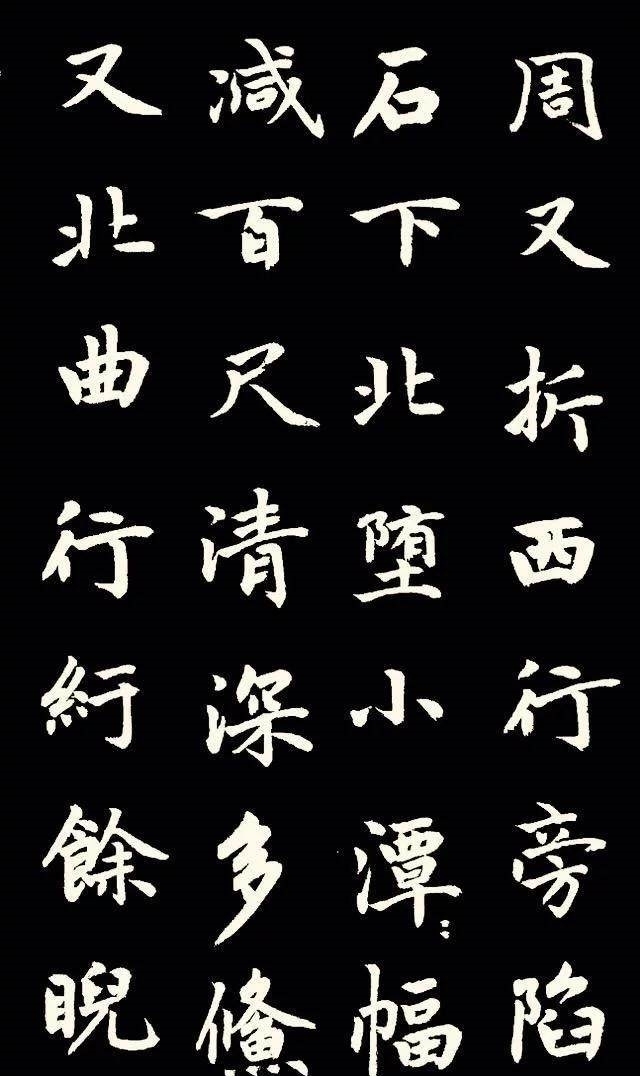 周又折西行旁陷
石下北堕小潭幅
減百尺清深多鯈
又北曲行紆餘睨